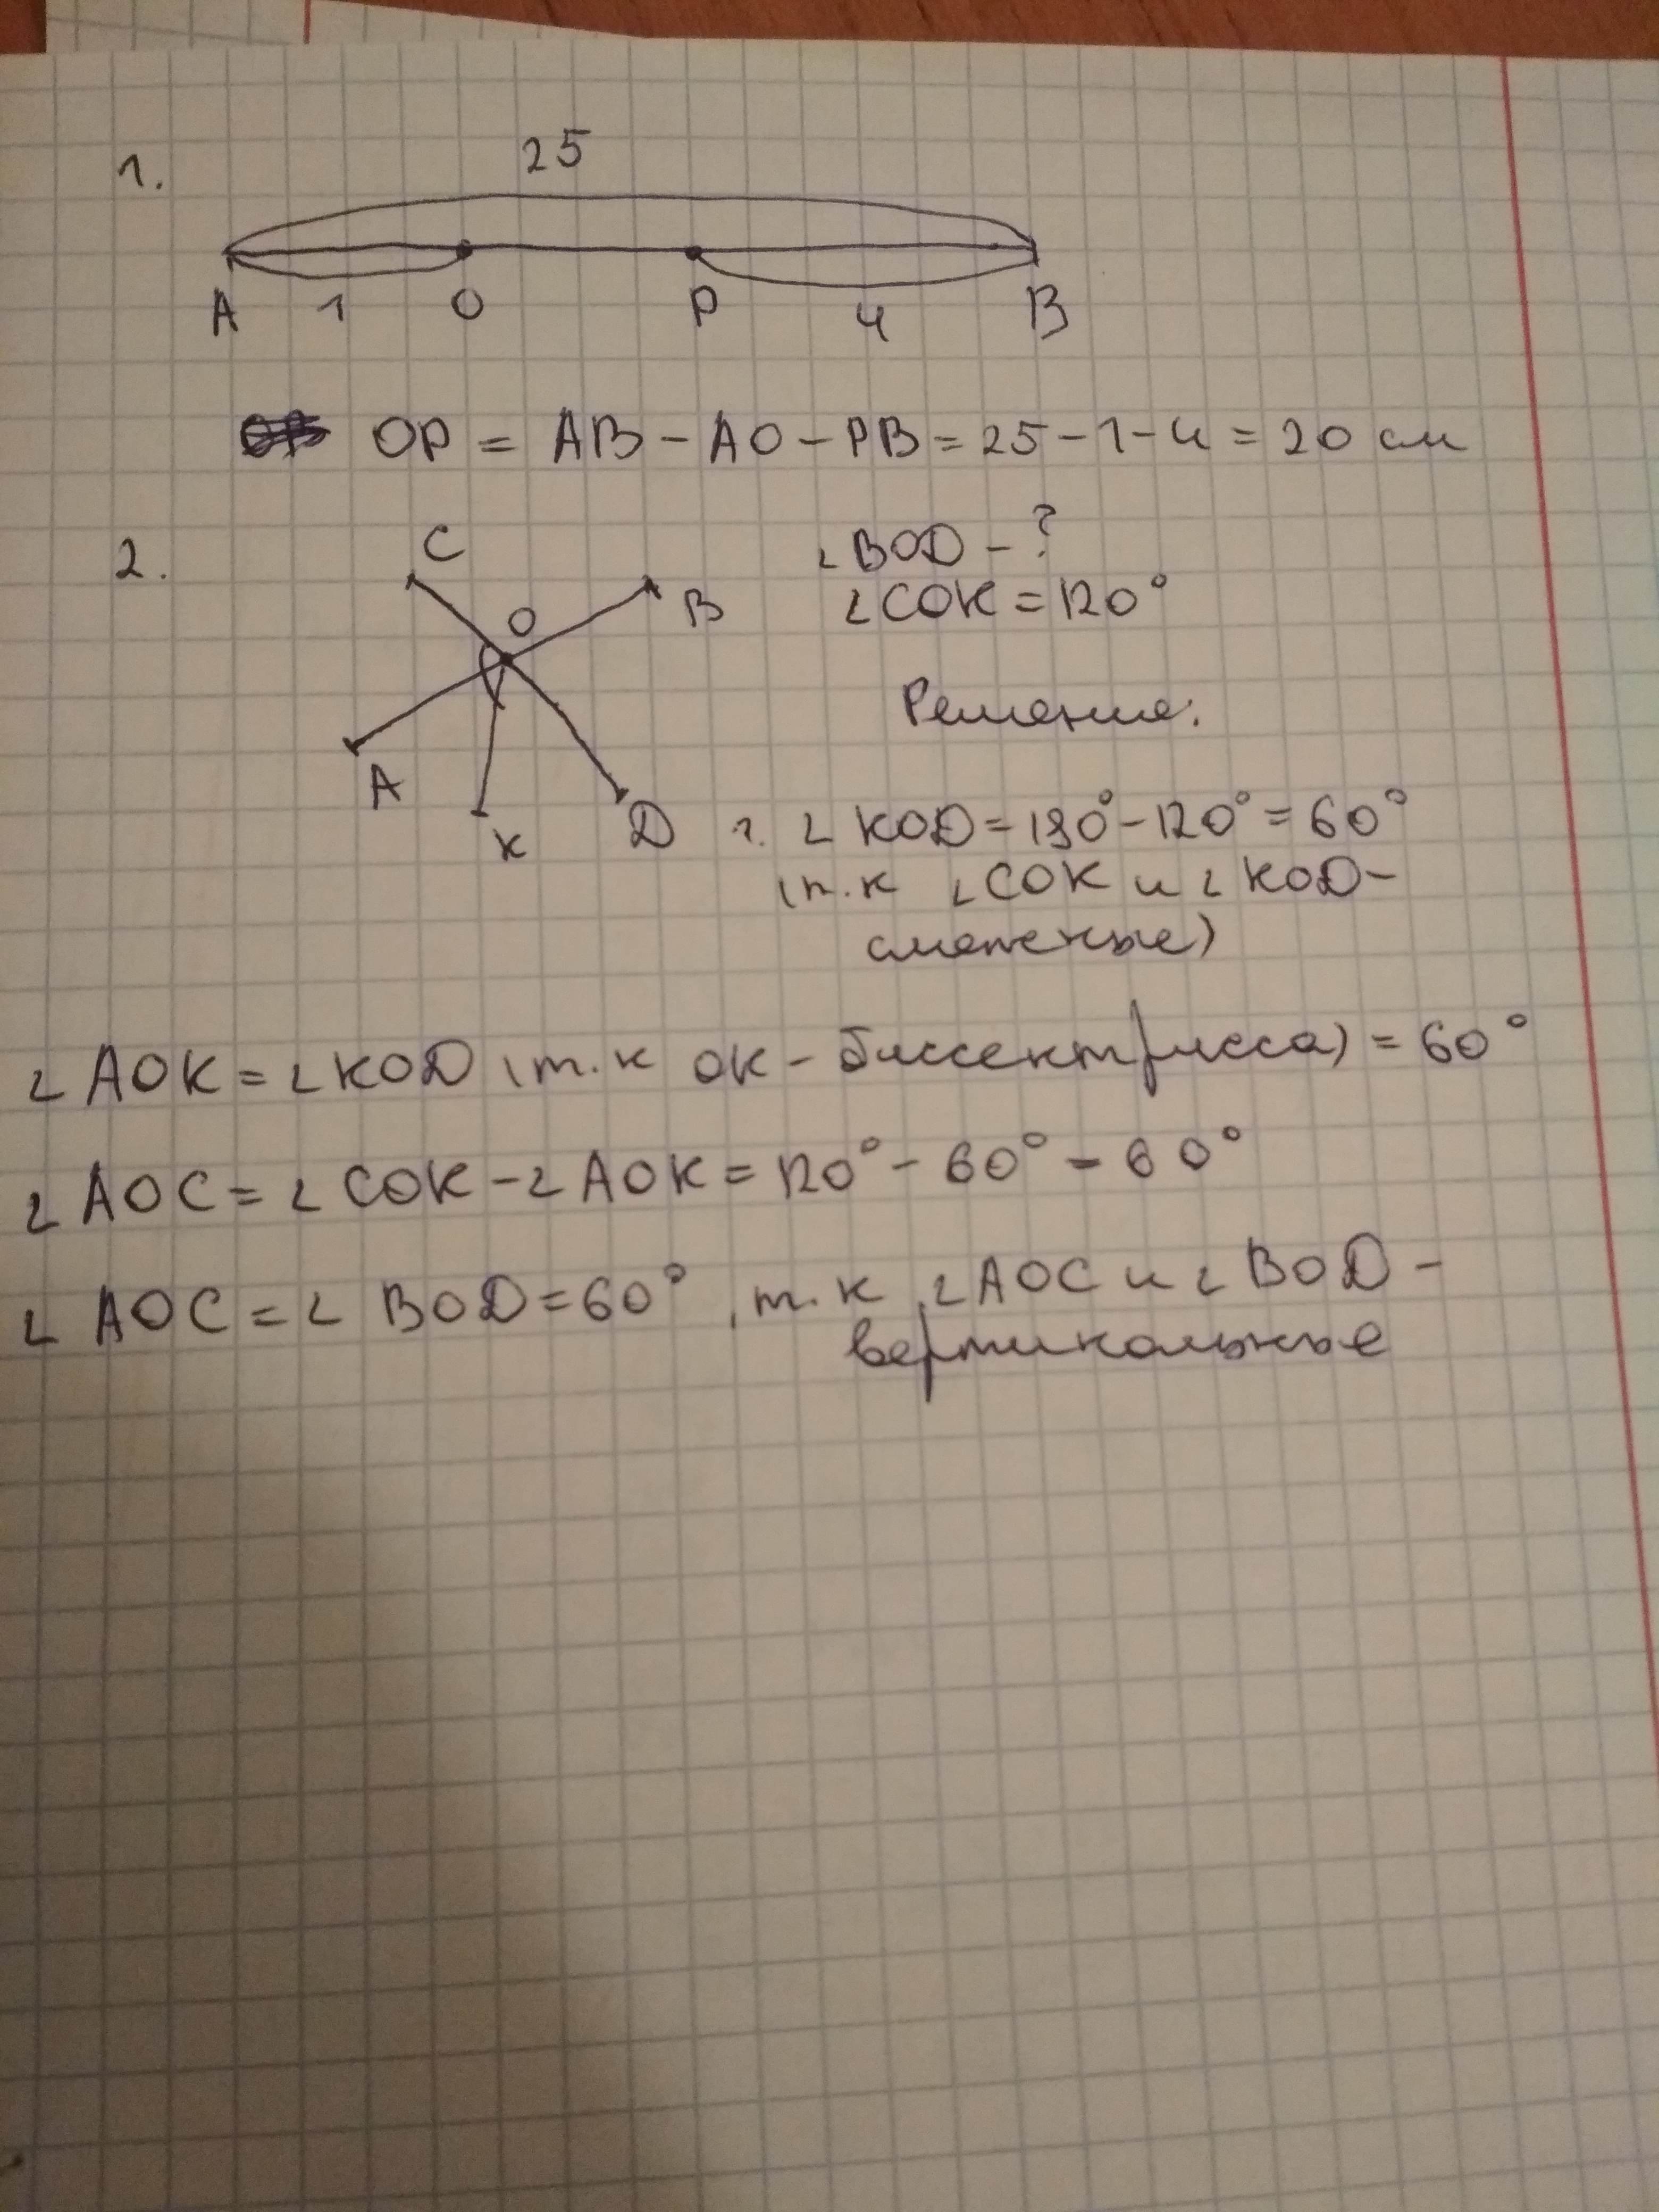 1.
25
A 1 O P 4 B
OP = AB - AO - PB = 25 - 1 - 4 = 20 см
2.
C
O
B
A
K
D
∠BOD - ?
∠COK = 120°
Решение:
1. ∠KOD = 180° - 120° = 60°
(т.к ∠COK и ∠KOD -
смежные)
∠AOK = ∠KOD (т.к OK - биссектрисса) = 60°
∠AOC = ∠COK - ∠AOK = 120° - 60° = 60°
∠AOC = ∠BOD = 60°, т.к ∠AOC и ∠BOD -
вертикальные